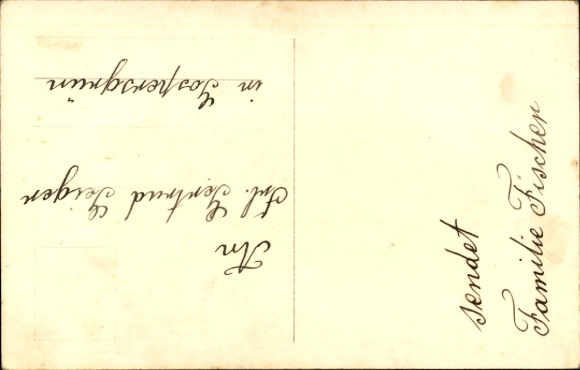 An
Frl. Gertrud Geiger
in Gospersgrün
sendet
Familie Fischer